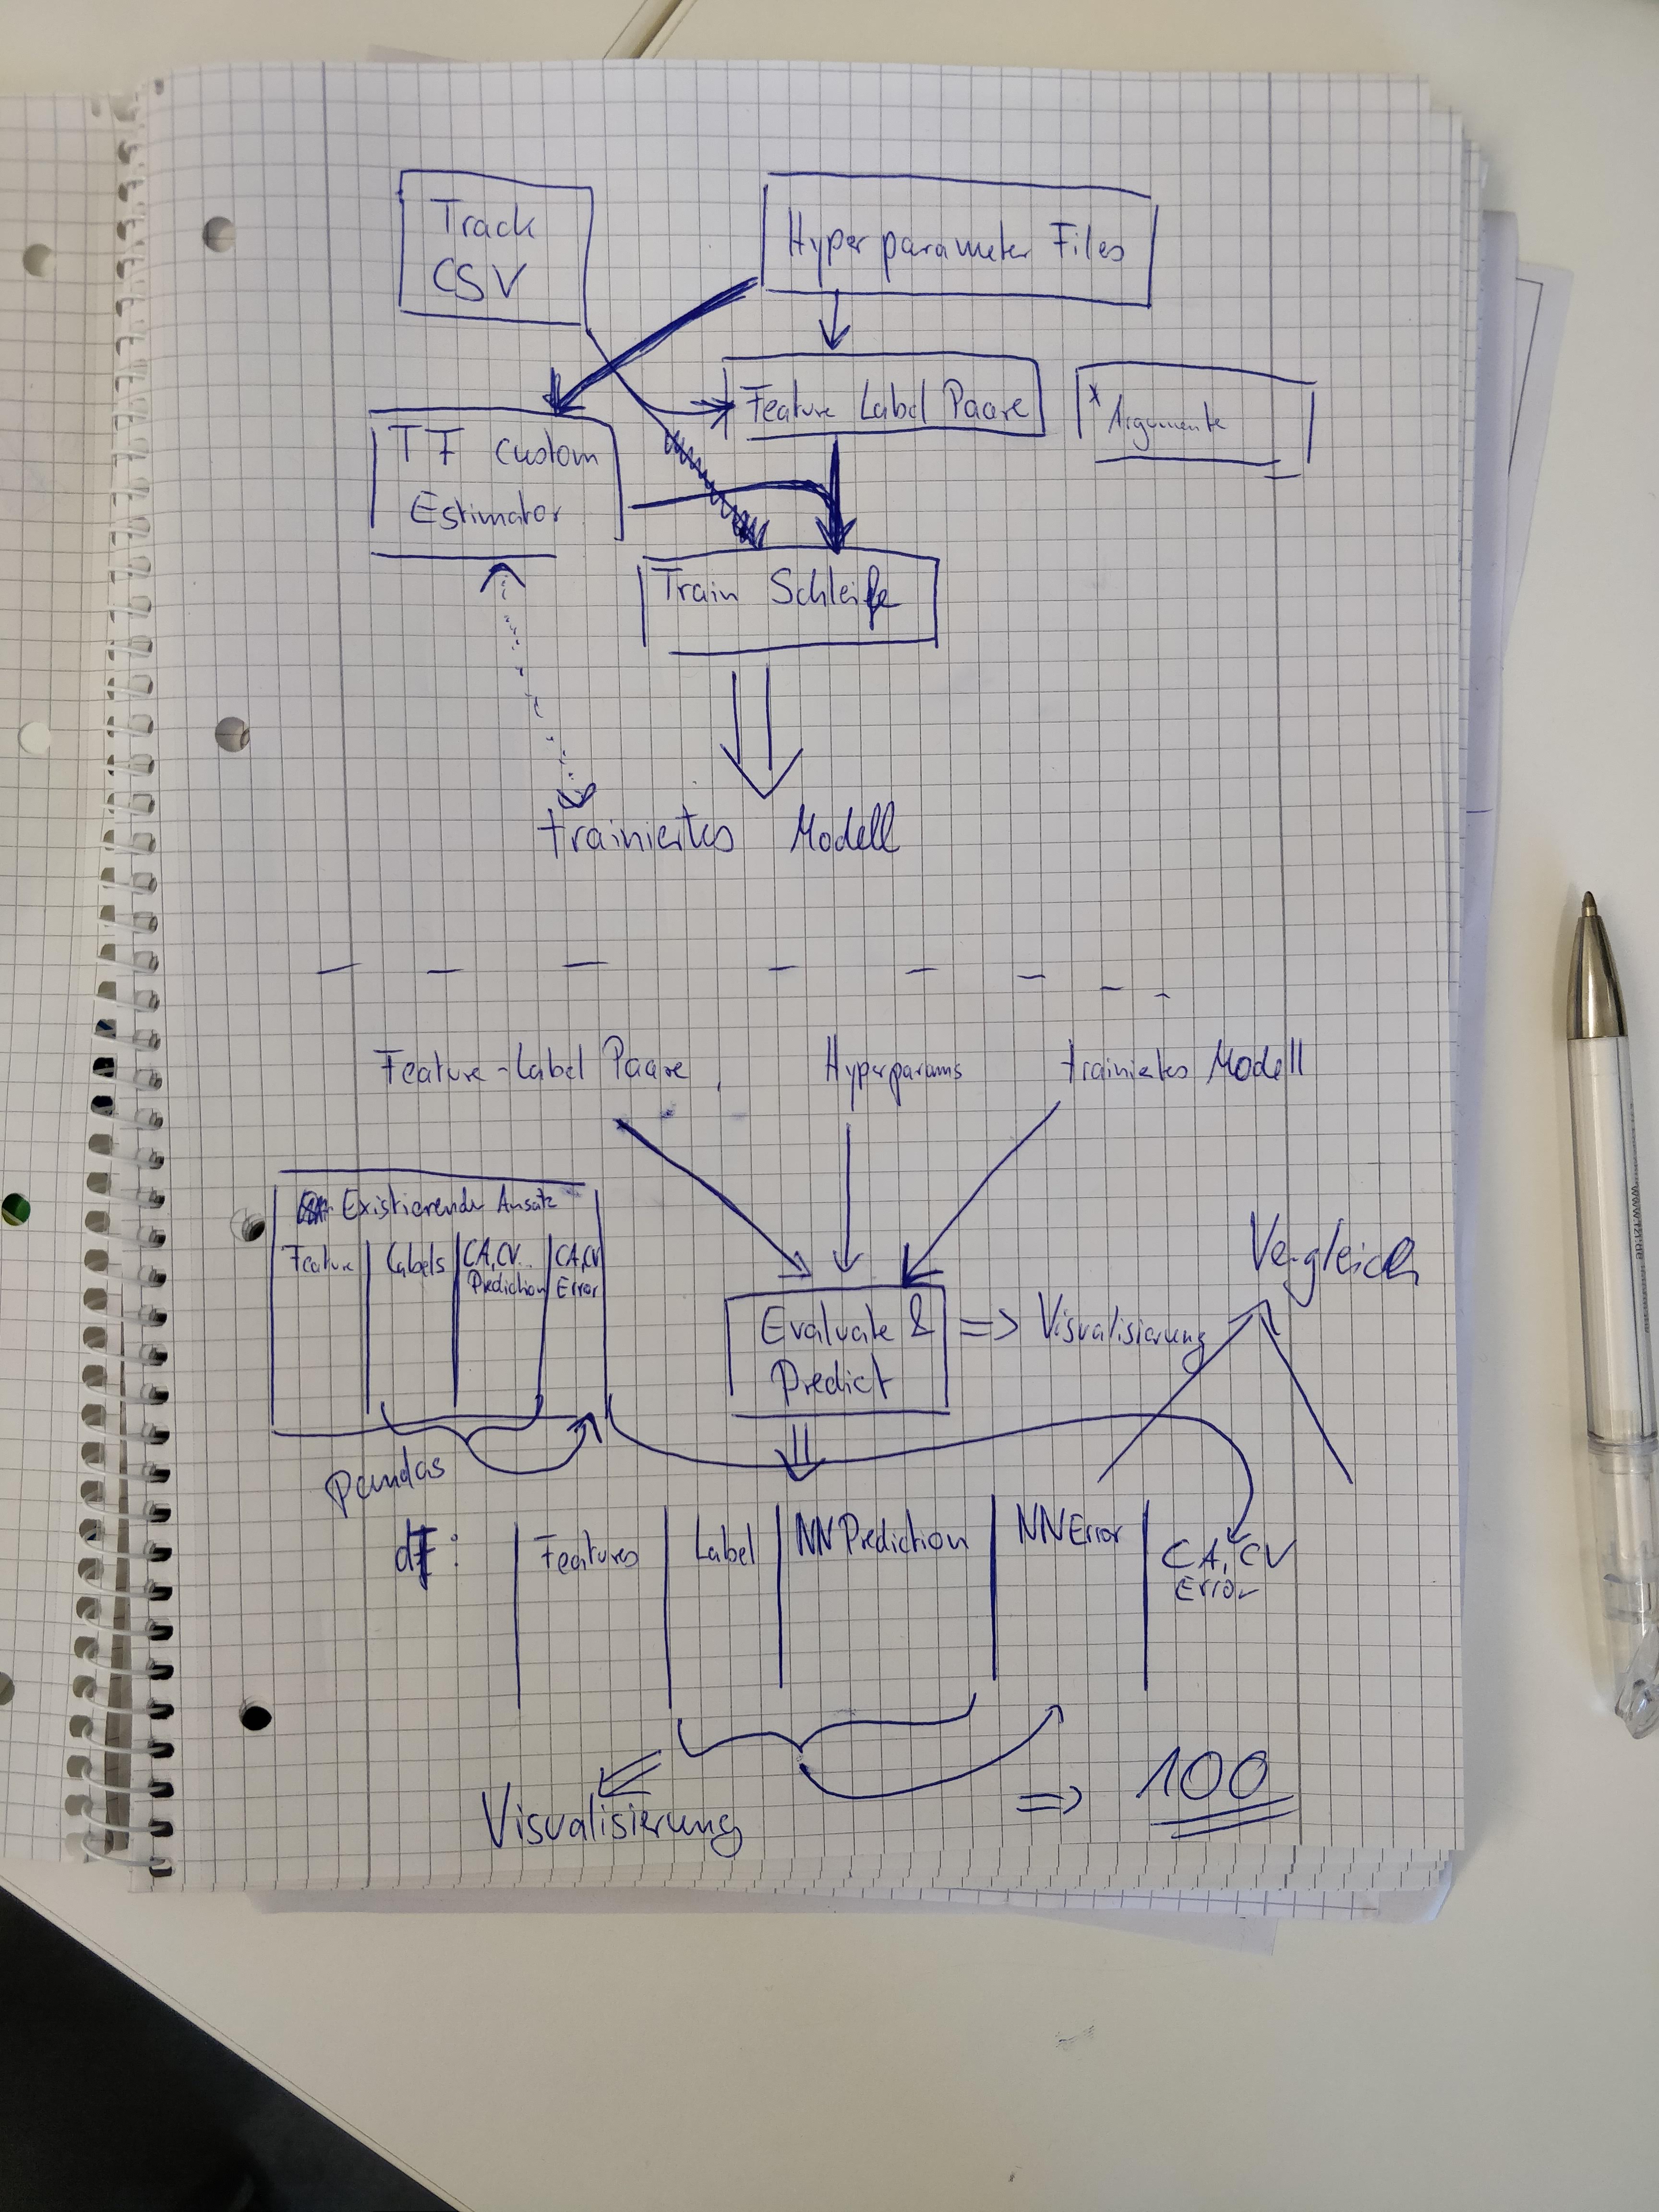 Track
CSV
Hyperparameter Files
Feature Label Paare
* Argumente
TF Custom
Estimator
Train Schleife
trainiertes Modell
Feature-Label Paare, Hyperparams trainiertes Modell
Existierender Ansatz
Feature Labels CA,CV.. CA,CV
Prediction Error
Vergleich
Evaluate & => Visualisierung
Predict
pandas
df: Features Label NN Prediction NN Error CA, CV
Error
=> 100
Visualisierung